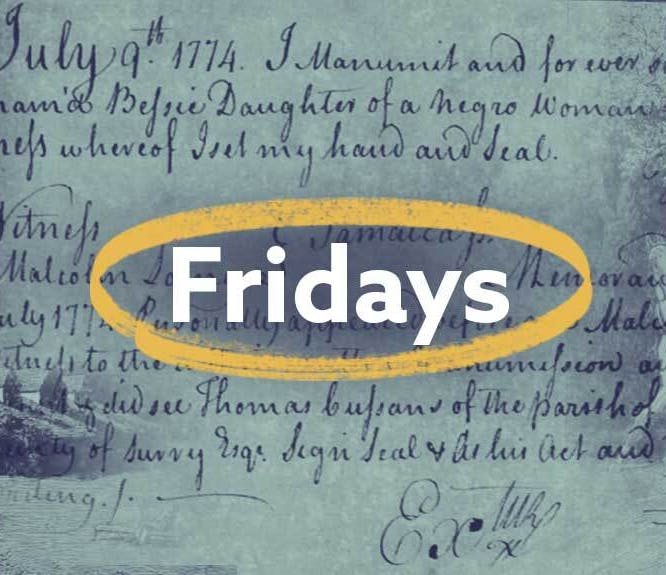 July 9.th 1774. I Manumit and for ever
nam'd Bessie Daughter of a Negro Woman
ness whereof I set my hand and Seal.
Witness Jamaica ss.
Malcolm Memoran
uly 177 Personally appeared before Malc
itness to the Manumission
did see Thomas Cussans of the parish of
of Surry Esqr. Sign Seal & As his Act and
Ex
Fridays